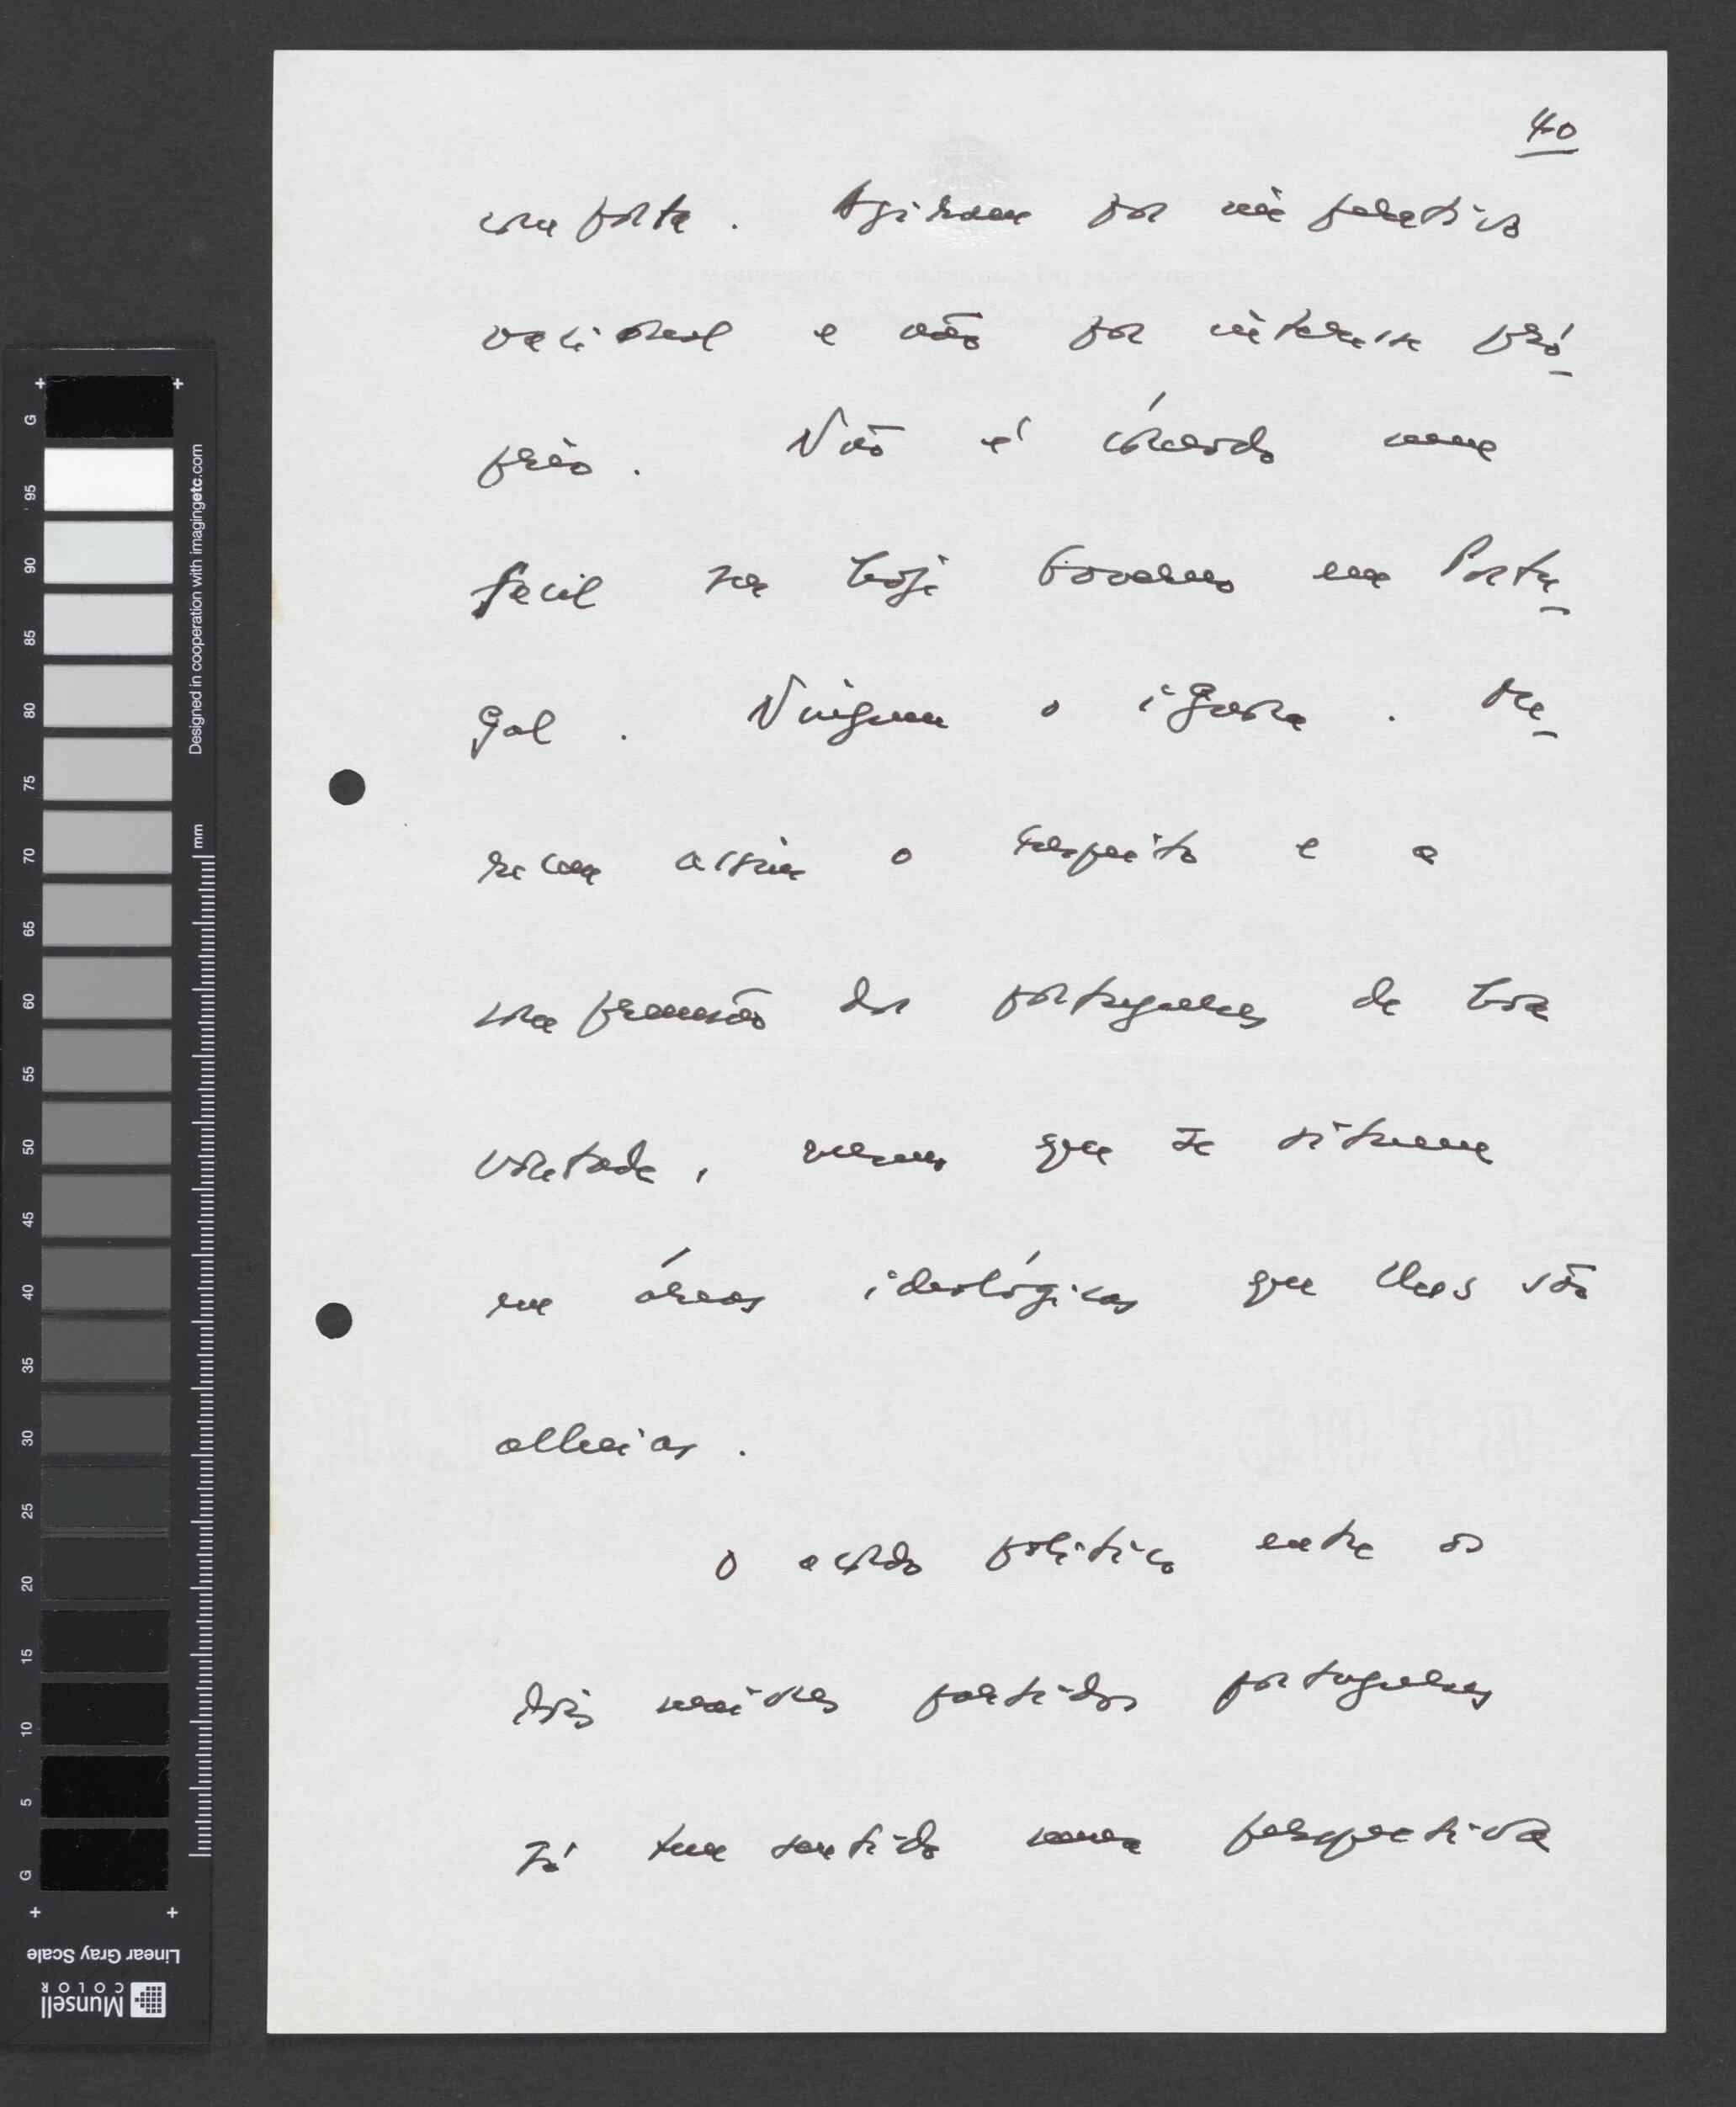 40
comporta. Agiram por imperativo
nacional e não por interesse pró
prio. Não é cómodo nem
fácil ser hoje Governo em Portu
gal. Ninguem o ignora. Me
recem assim o respeito e a
compreensão dos portugueses de boa
vontade, mesmo que se situem
em áreas ideológicas que lhes são
alheias.
O acordo político entre os
dois maiores partidos portugueses
só tem sentido numa perspectiva
G
95
90
85
80
75
70
65
60
55
50
45
40
35
30
25
20
15
10
5
G
Designed in cooperation with imagingetc.com
mm
Linear Gray Scale
Munsell
COLOR